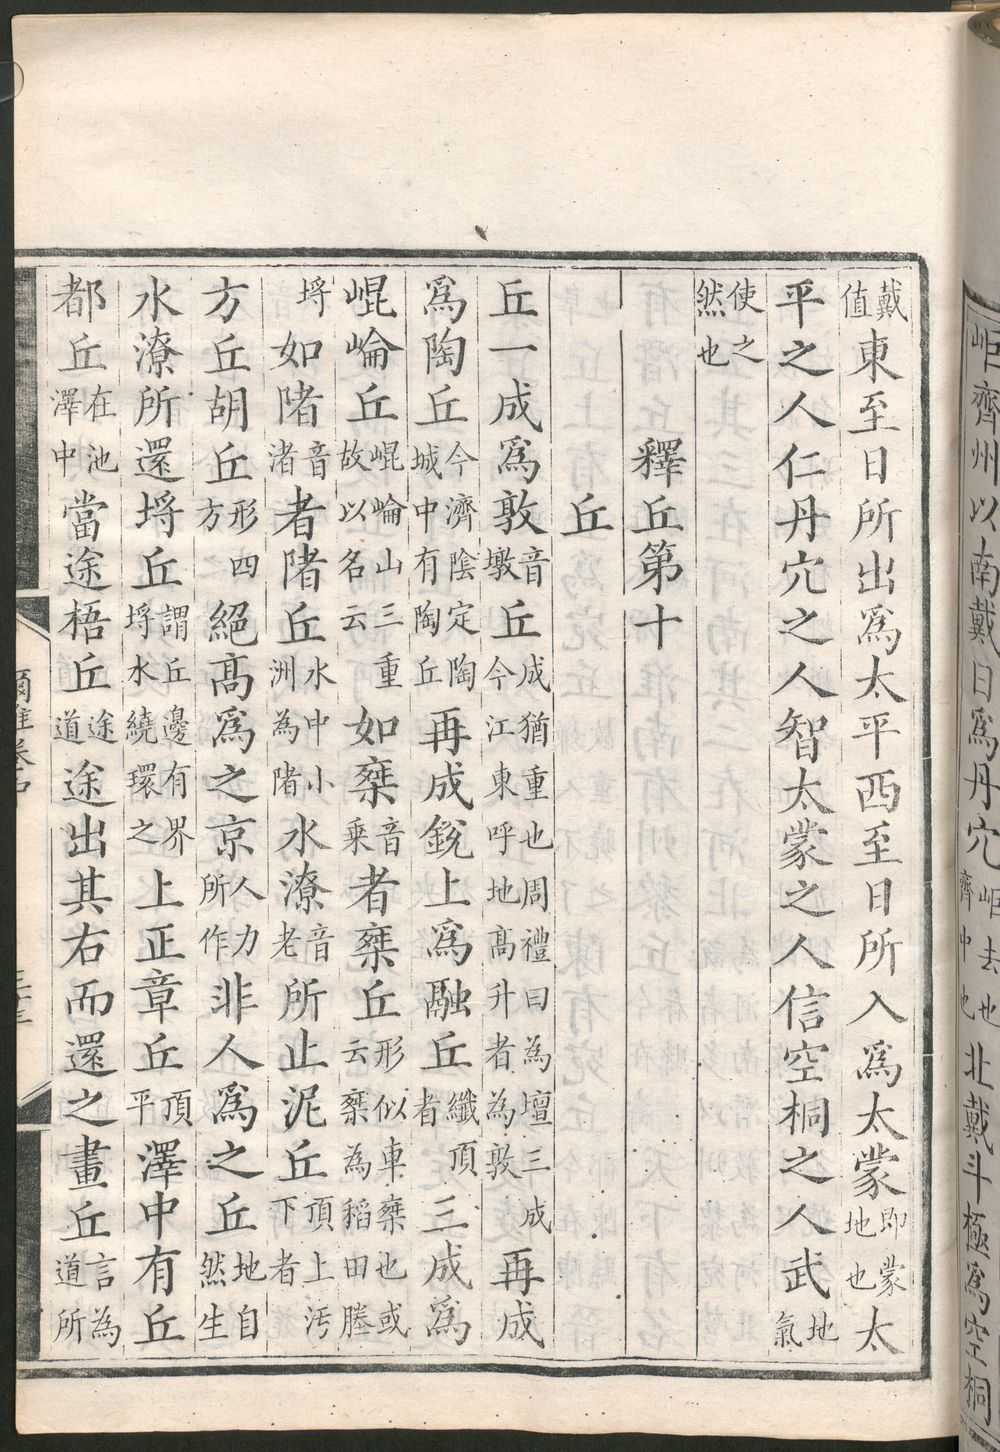 岠齊州以南戴日爲丹穴岠去也齊中也北戴斗極爲空桐
戴值東至日所出爲太平西至日所入爲太蒙即蒙地也太
平之人仁丹穴之人智太蒙之人信空桐之人武地氣
使之然也
釋丘第十
丘
丘一成爲敦音墩丘成猶重也周禮曰為壇三成今江東呼地高升者為敦再成
爲陶丘今濟陰定陶城中有陶丘再成銳上爲融丘纖頂者三成爲
崐崘丘崐崘山三重故以名云如椉音乗者椉丘形似車椉也或云椉為稻田塍
埒如陼音渚者陼丘水中小洲為陼水潦音老所止泥丘頂上汚下者
方丘胡丘形四方絕高爲之京人力所作非人爲之丘地自然生
水潦所還埒丘謂丘邊有界埒水繞環之上正章丘頂平澤中有丘
都丘在池澤中當途梧丘途道途出其右而還之畫丘言為道所
爾雅卷中